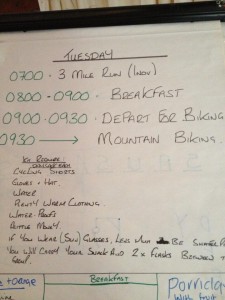 TUESDAY
0700 · 3 MILE RUN (1NOV)
0800 - 0900 · BREAKFAST
0900 - 0930 · DEPART FOR BIKING
0930 → MOUNTAIN BIKING.
KIT REQUIRED
CYCLING SHORTS
GLOVES + HAT.
WATER
PLENTY WARM CLOTHING.
WATER-PROOFS
MONEY
IF YOU WEAR (SUN) GLASSES, LENS MUST BE
YOU WILL CARRY YOUR SNACK AND 2 X FLASKS BETWEEN
GROUP
BREAKFAST
Porridge
with fruit